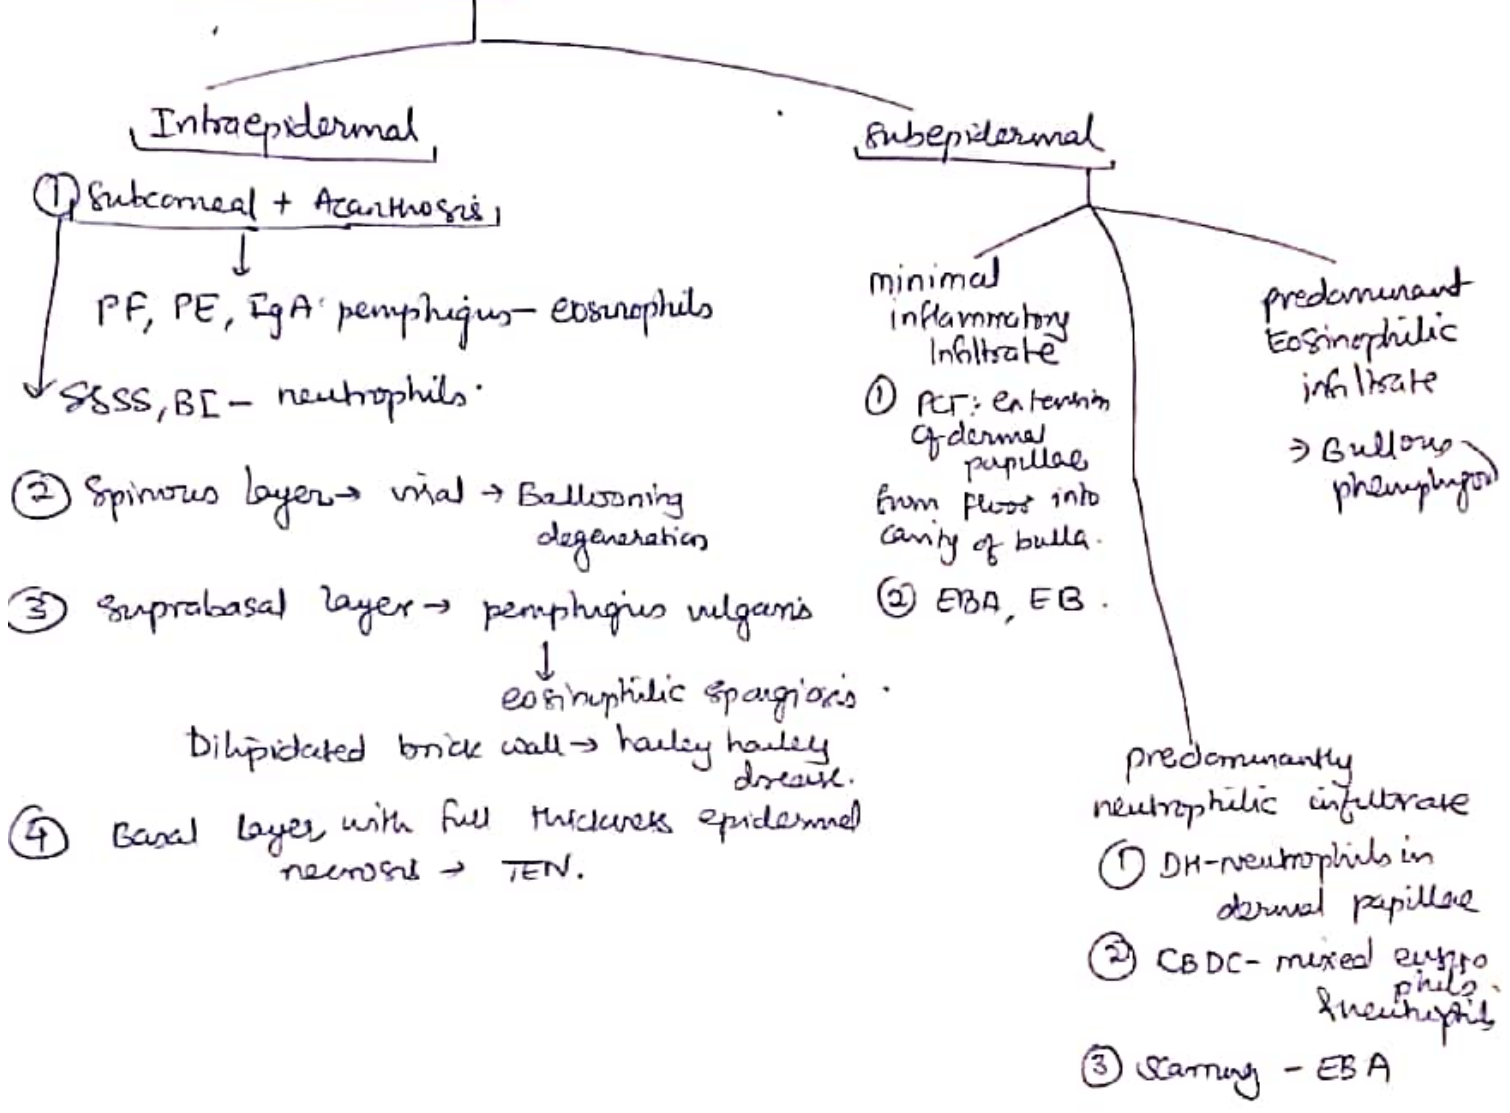 Intraepidermal
① Subcorneal + Acanthosis
PF, PE, IgA pemphigus - eosinophils
SSSS, BI - neutrophils.
② Spinous layer → viral → Ballooning
degeneration
③ Suprabasal layer → pemphigus vulgaris
↓
eosinophilic spongiosis.
Dilipidated brick wall → hailey hailey
disease.
④ Basal layer with full thickness epidermal
necrosis → TEN.
Subepidermal
minimal
inflammatory
Infiltrate
① PCT: extension
of dermal
papillae
from floor into
cavity of bulla.
② EBA, EB.
predominant
Eosinophilic
infiltrate
→ Bullous
phemphigoid
predominantly
neutrophilic infiltrate
① DH-neutrophils in
dermal papillae
② CBDC - mixed
phils
& neutrophils
③ Scarring - EBA